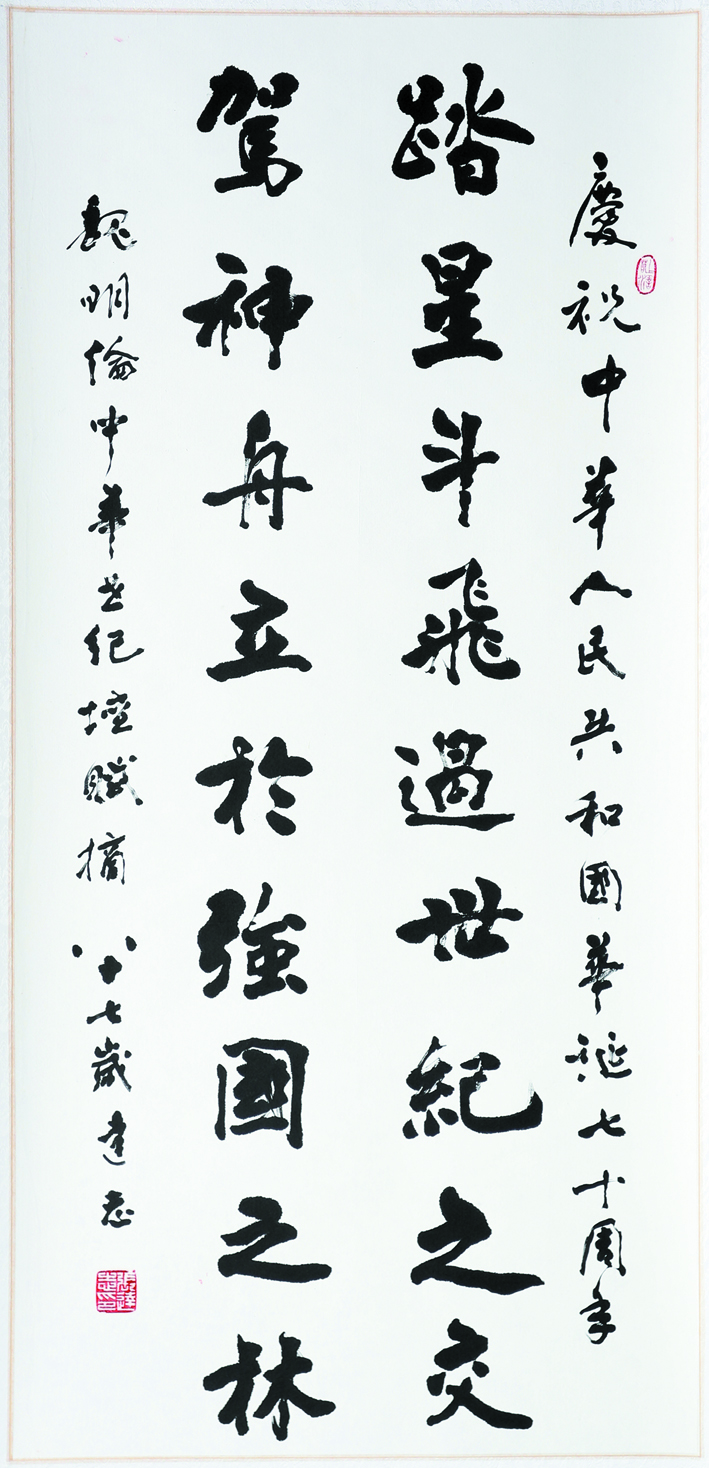 慶祝中華人民共和國華誕七十周年
踏星斗飛過世紀之交
駕神舟立於強國之林
魏明倫中華世紀壇賦摘 八十七歲達志
張達志印